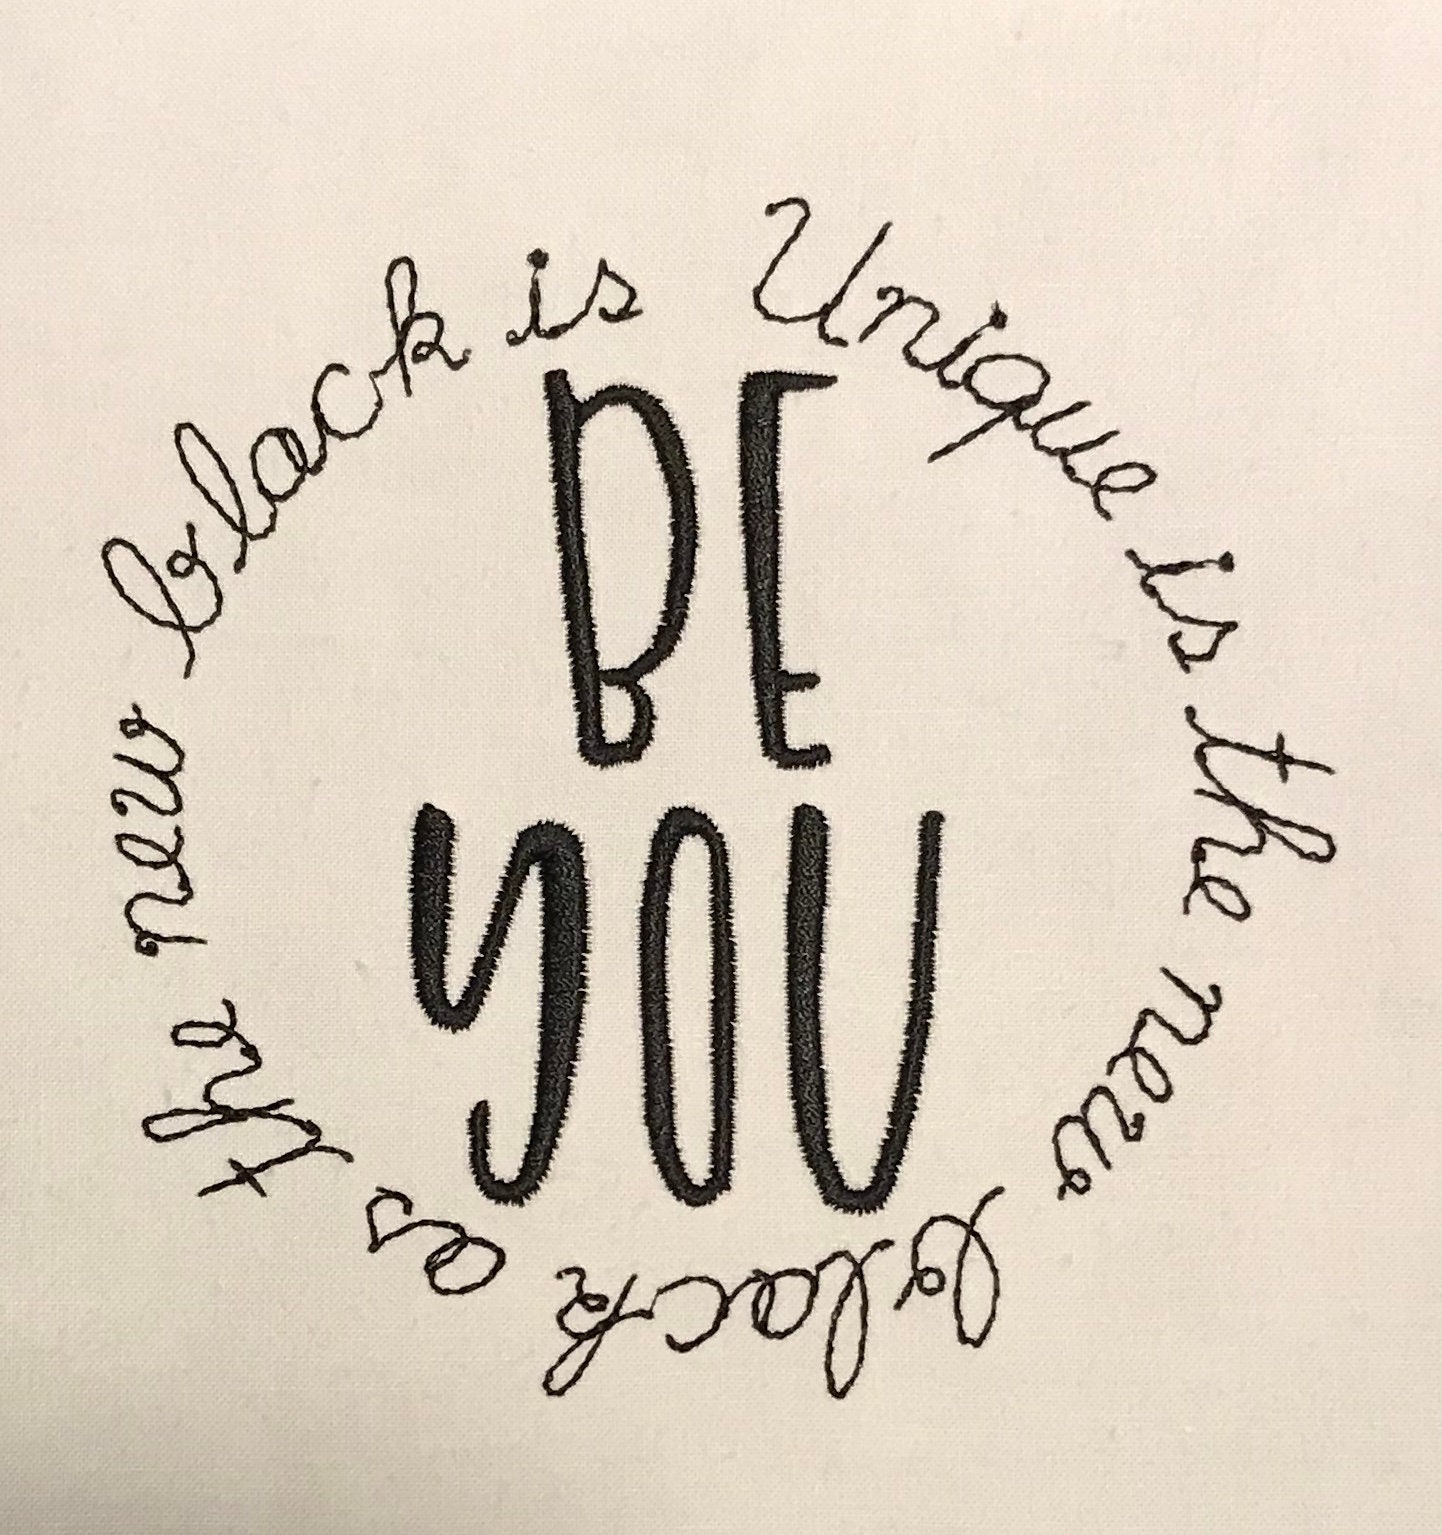 BE
YOU
Unique is the new black as the new black is